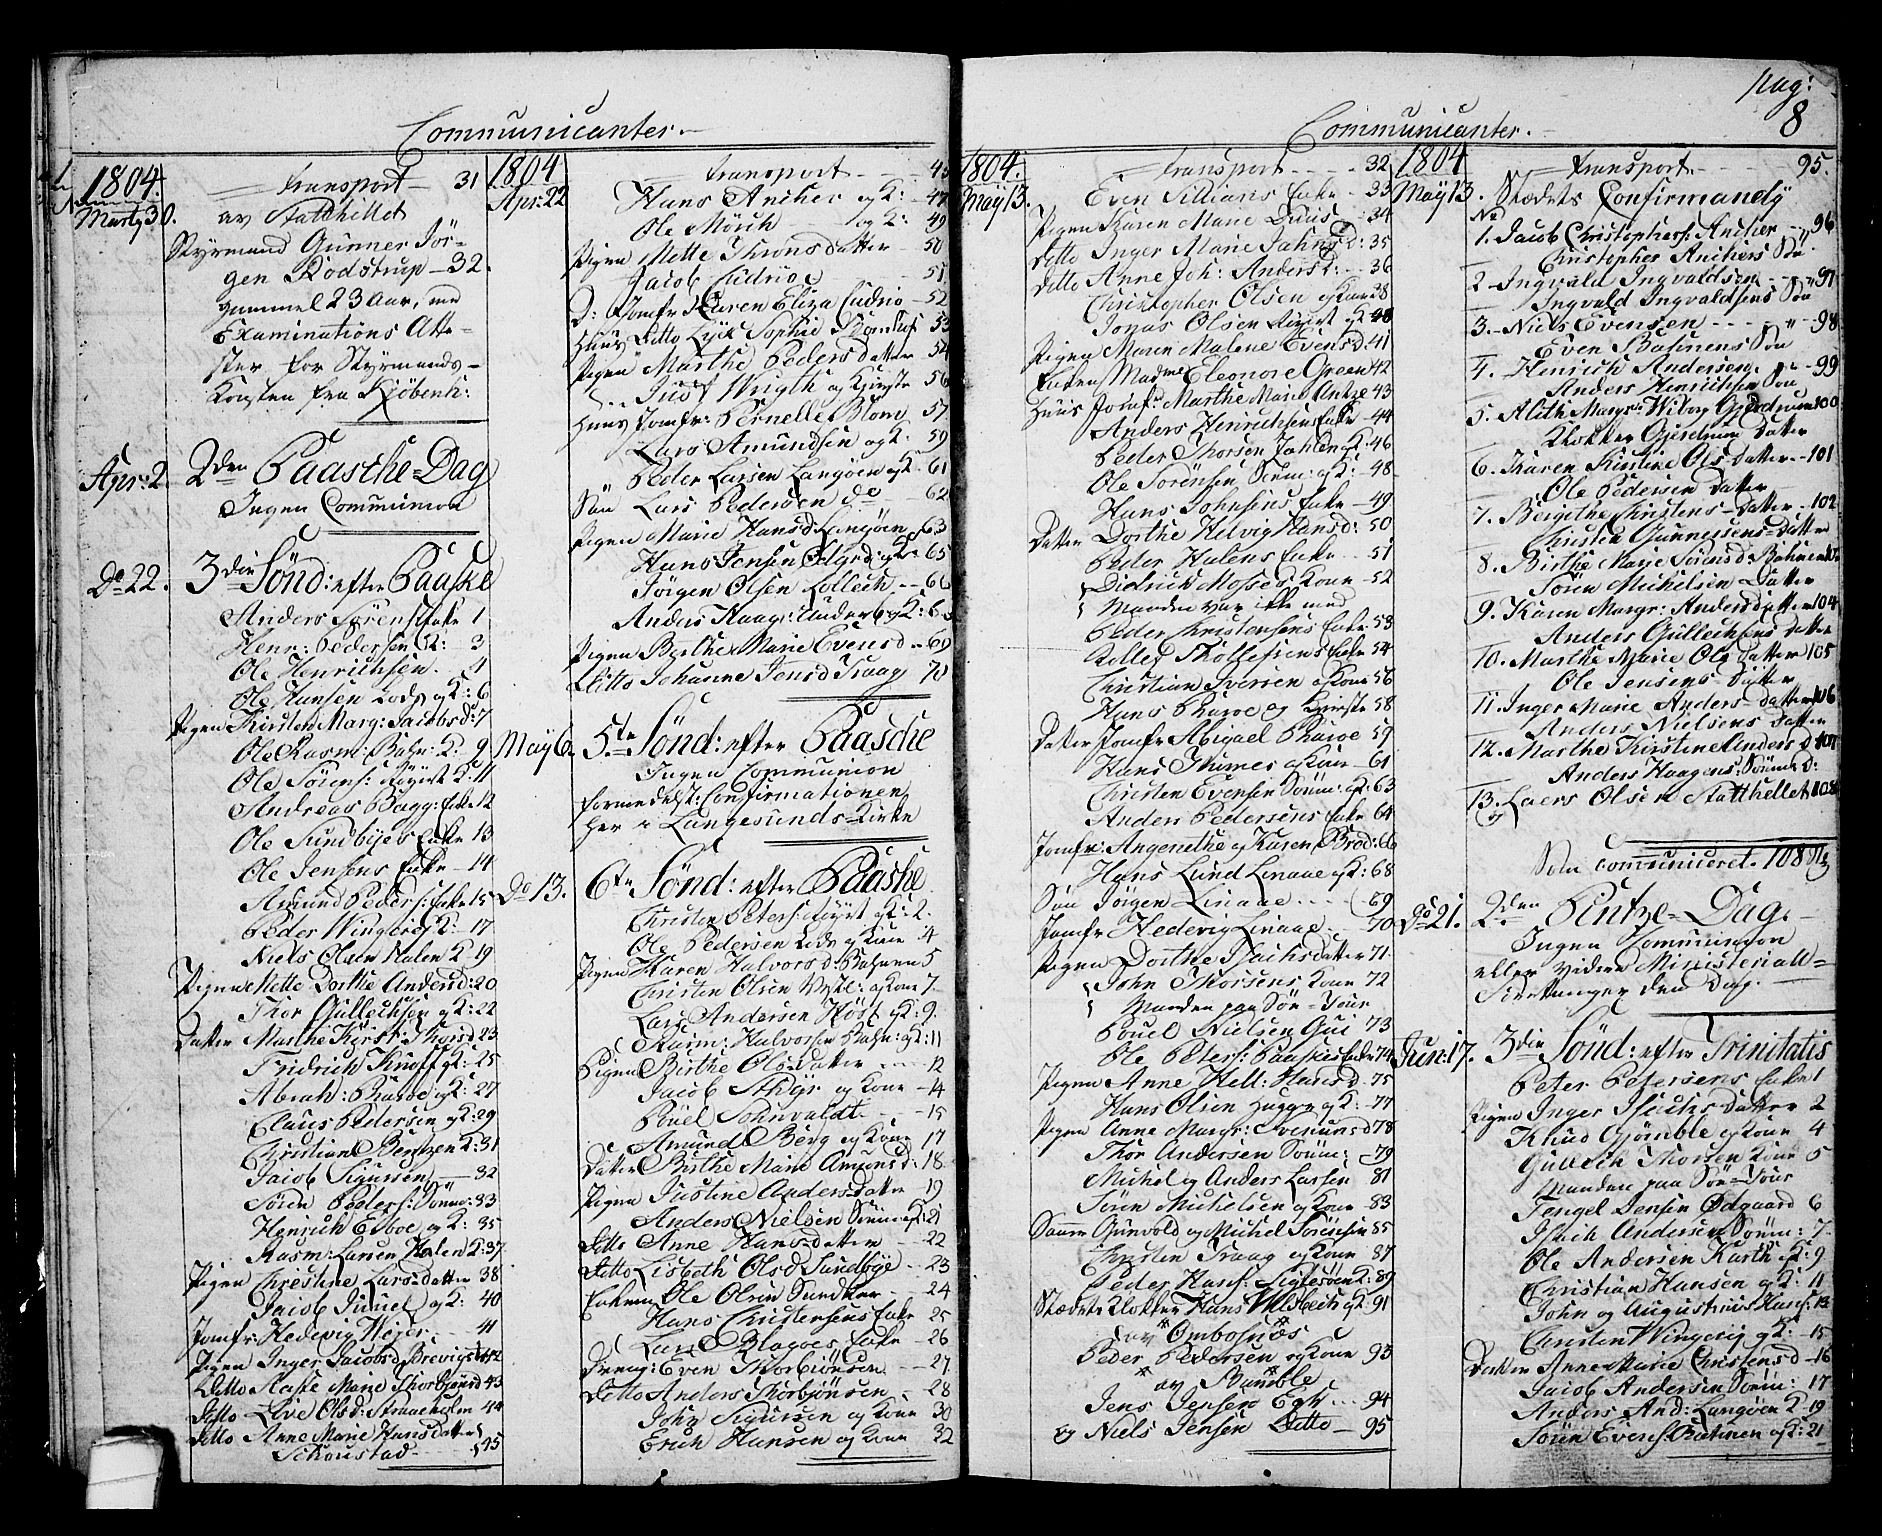 Pag:
8
Communicanter.
1804.
Marty 30.
Transport - 31
av Statthellet
Styrmand Gunner Jör-
gen Rodstrup - 32.
gammel 23 Aar, med
Examinations Atte-
ster for Styrmands-
Konsten fra Kjöbenh:
Apr: 2
2den Paasche-Dag
Ingen Communion
Do 22.
3die Sönd: efter Paaske
Anders Sörens: Enke 1
Henr: Pedersen K: 3
Ole Henrichsen 4
Ole Hansen Lods og K: 6
Pigen Kirsten Marg: Jacobsd: 7
Ole Rasm: Bahn: K: 9
Ole Sörens: K: 11
Andreas Bagg: Enke 12
Ole Sundbyes Enke 13
Ole Jensens Enke 14
Amund Peders: Enke 15
Peder Wingerej K: 17
Niels Olsen Halen K: 19
Pigen Mette Dorthe Andersd: 20
Thor Gullechsen og K: 22
Datter Marthe Kirst: Thorsd 23
Fridrich Knoff og K: 25
Abrah: Buroe og K: 27
Claus Pedersen og K: 29
Christian Bentzen K: 31
Jacob Sigursen 32
Sören Peders: Sönm: 33
Henrich Esboe og K: 35
Rasm: Larsen Halen K: 37
Pigen Christine Lars-datter 38
Jacob Juuel og K: 40
Jomfr: Hedevig Wejer 41
Pigen Inger Jacobsd Brevigs 42
Ditto Aaste Marie Thorbjönsd 43
Ditto Live Olsd: Straaholm 44
Ditto Anne Marie Hansdatter
Schoustad 45
1804
Apr: 22
Transport 45
Hans Ancher og K: 47
Ole Mörch og K: 49
Pigen Mette Thronsdatter 50
Jacob Cudrio 51
D: Jomfr Karen Eliza Cudrio 52
Huus Ditto Sophie 53
Pigen Marthe Pedersdatter 54
Just Wrigth og Kjereste 56
Huus Jomfr: Pernelle Blom 57
Lars Amundsen og K: 59
Peder Larsen Langöen og K 61
Sön Lars Pedersen do 62
Pigen Marie Hansd: Langöen 63
Hans Jensen Odgrd: og K: 65
Jörgen Olsen Rollech 66
Anders Haag: og K: 68
Pigen Byrthe Marie Evensd 69
Ditto Johanne Jensd Traag 70
May 6.
5te Sönd: efter Paasche
Ingen Communion
formedelst: Confirmationen
her i Langesunds-Kirke
Do 13.
6te Sönd: efter Paasche
Christen Peters: og K: 2.
Ole Pedersen Lods og Kone 4
Pigen Karen Halvorsd: Bahnen 5
Christen Olsen og Kone 7
Lars Andersen Höst og K: 9.
Rasm: Halvorsen Bahn: og K: 11
Pigen Birthe Olsdatter 12
Jacob og Kone 14
Poul Johnvaldt 15
Amund Berg og Kone 17
Datter Birthe Marie Amunsd: 18
Pigen Justine Andersdatter 19
Anders Nielsen Sönm: og K: 21
Ditto Anne Hansdatter 22
Ditto Lisbeth Olsd Sundbye 23
Ole Olsen 24
Hans Christensens Enke 25
Lars Enke 26
Dreng: Even Thorbiönsen 27
Ditto Anders Thorbjönsen 28
John Sigursen og Kone 30
Erich Hansen og Kone 32
Communicanter.
1804.
May 13.
Transport 32
Even Enke 33
Pigen Karen Marie Duus 34
Ditto Inger Marie Jahnsd: 35
Ditto Anne Joh: Andersd: 36
Christopher Olsen og Kone 38
Jonas Olsen og K 40
Pigen Maren Malene Evensd. 41
Enken Madme Eleonore Green 42
Huus Jomf: Marthe Marie Antze 43
Anders Henrichsens Enke 44
Peder Thorsen og K: 46
Ole Sörensen Sönm: og K: 48
Hans Johnsens Enke 49
Datter Dorthe Helvig Hansd: 50
Peder Halens Enke 51
Didrich Moses Kone 52
Manden var ikke med
Peder Christensens Enke 53
Rollef Thollefsens Enke 54
Christian Iversen og Kone 56
Hans Buroe og Kjereste 58
Datter Jomfr Abigael Buroe 59
Hans Thimes og Kone 61
Christen Evensen Sönm: og K: 63
Anders Pedersens Enke 64
Jomfr: Angenethe og Karen Brod: 66
Hans Lund Linaae og K: 68
Sön Jörgen Linaae 69
Jomfr Hedevig Linaae 70
Pigen Dorthe Isachsdatter 71.
John Thorsens Kone 72
Manden paa Söe-Tour
Pouel Nielsen 73
Ole Peters: Paaskes Enke 74
Pigen Anne Hell: Hansd 75
Hans Olsen og K: 77
Pigen Anne Margr: Svenunsd 78
Thor Andersen Sönm: 79
Michel og Anders Larsen 81
Sören Michelsen og Kone 83
Sönner Gunvold og Michel Sörensen 85
Christen Traag og Kone 87
Peder Hans: Sigtesöen K: 89
Stædets Klokker Hans og K: 91
av Ombosnæs
Peder Pedersen og Kone 93
av Bamble
Jens Jensen 94
og Niels Jensen Ditto 95
1804
May 13.
Transport 95.
Stædets Confirmandy
No
1. Jacob Christophers: Ancher 96
Christopher Anchers Sön
2. Ingvald Ingvaldsen 97
Ingvald Ingvaldsens Sön
3. Niels Evensen 98
Even Bahnens Sön
4. Henrich Andersen 99
Anders Henrichsen Sön
5. Alith Margr: Wiborg Gjerdrum 100
Klokker Gjerdrum Datter
6. Karen Kirstine Olsdatter 101
Ole Pedersen Datter
7. Bergithe Christens-datter 102
Christen Gunnersens-datter
8. Birthe Marje Sörensd: Bahnen 103
Sören Michelsen Datter
9. Karen Margr: Andersdatter 104
Anders Gullechsens Datter
10. Marthe Marie Ols datter 105
Ole Jensens Datter
11. Inger Marie Anders-datter 106
Anders Nielsens Datter
12. Marthe Kirstine Anders d 107
Anders Haagens: Sönm: D:
13. Laers Olsen Statthellet 108
Som communiceret 108
Do 21.
2den Pintze-Dag.
Ingen Communion
eller videre Ministeriall-
Forretninger den Dag.
Jun: 17.
3die Sönd: efter Trinitatis
Peter Petersens Enke 1
Pigen Inger Isachsdatter 2
Knud Gjömble og Kone 4
Gullich Thorsen Kone 5
Manden paa Söe-Tour
Tengel Jensen Ødgaard 6
Isach Andersen Sönm: 7
Ole Andersen og K: 9
Christian Hansen og K: 11
John og Augustinus Hans: 13
Christen Wingerej og K: 15
Datter Anne Marie Christensd 16
Jacob Andersen Sönm: 17
Anders And: Langöen K 19
Sören Evens: og K: 21